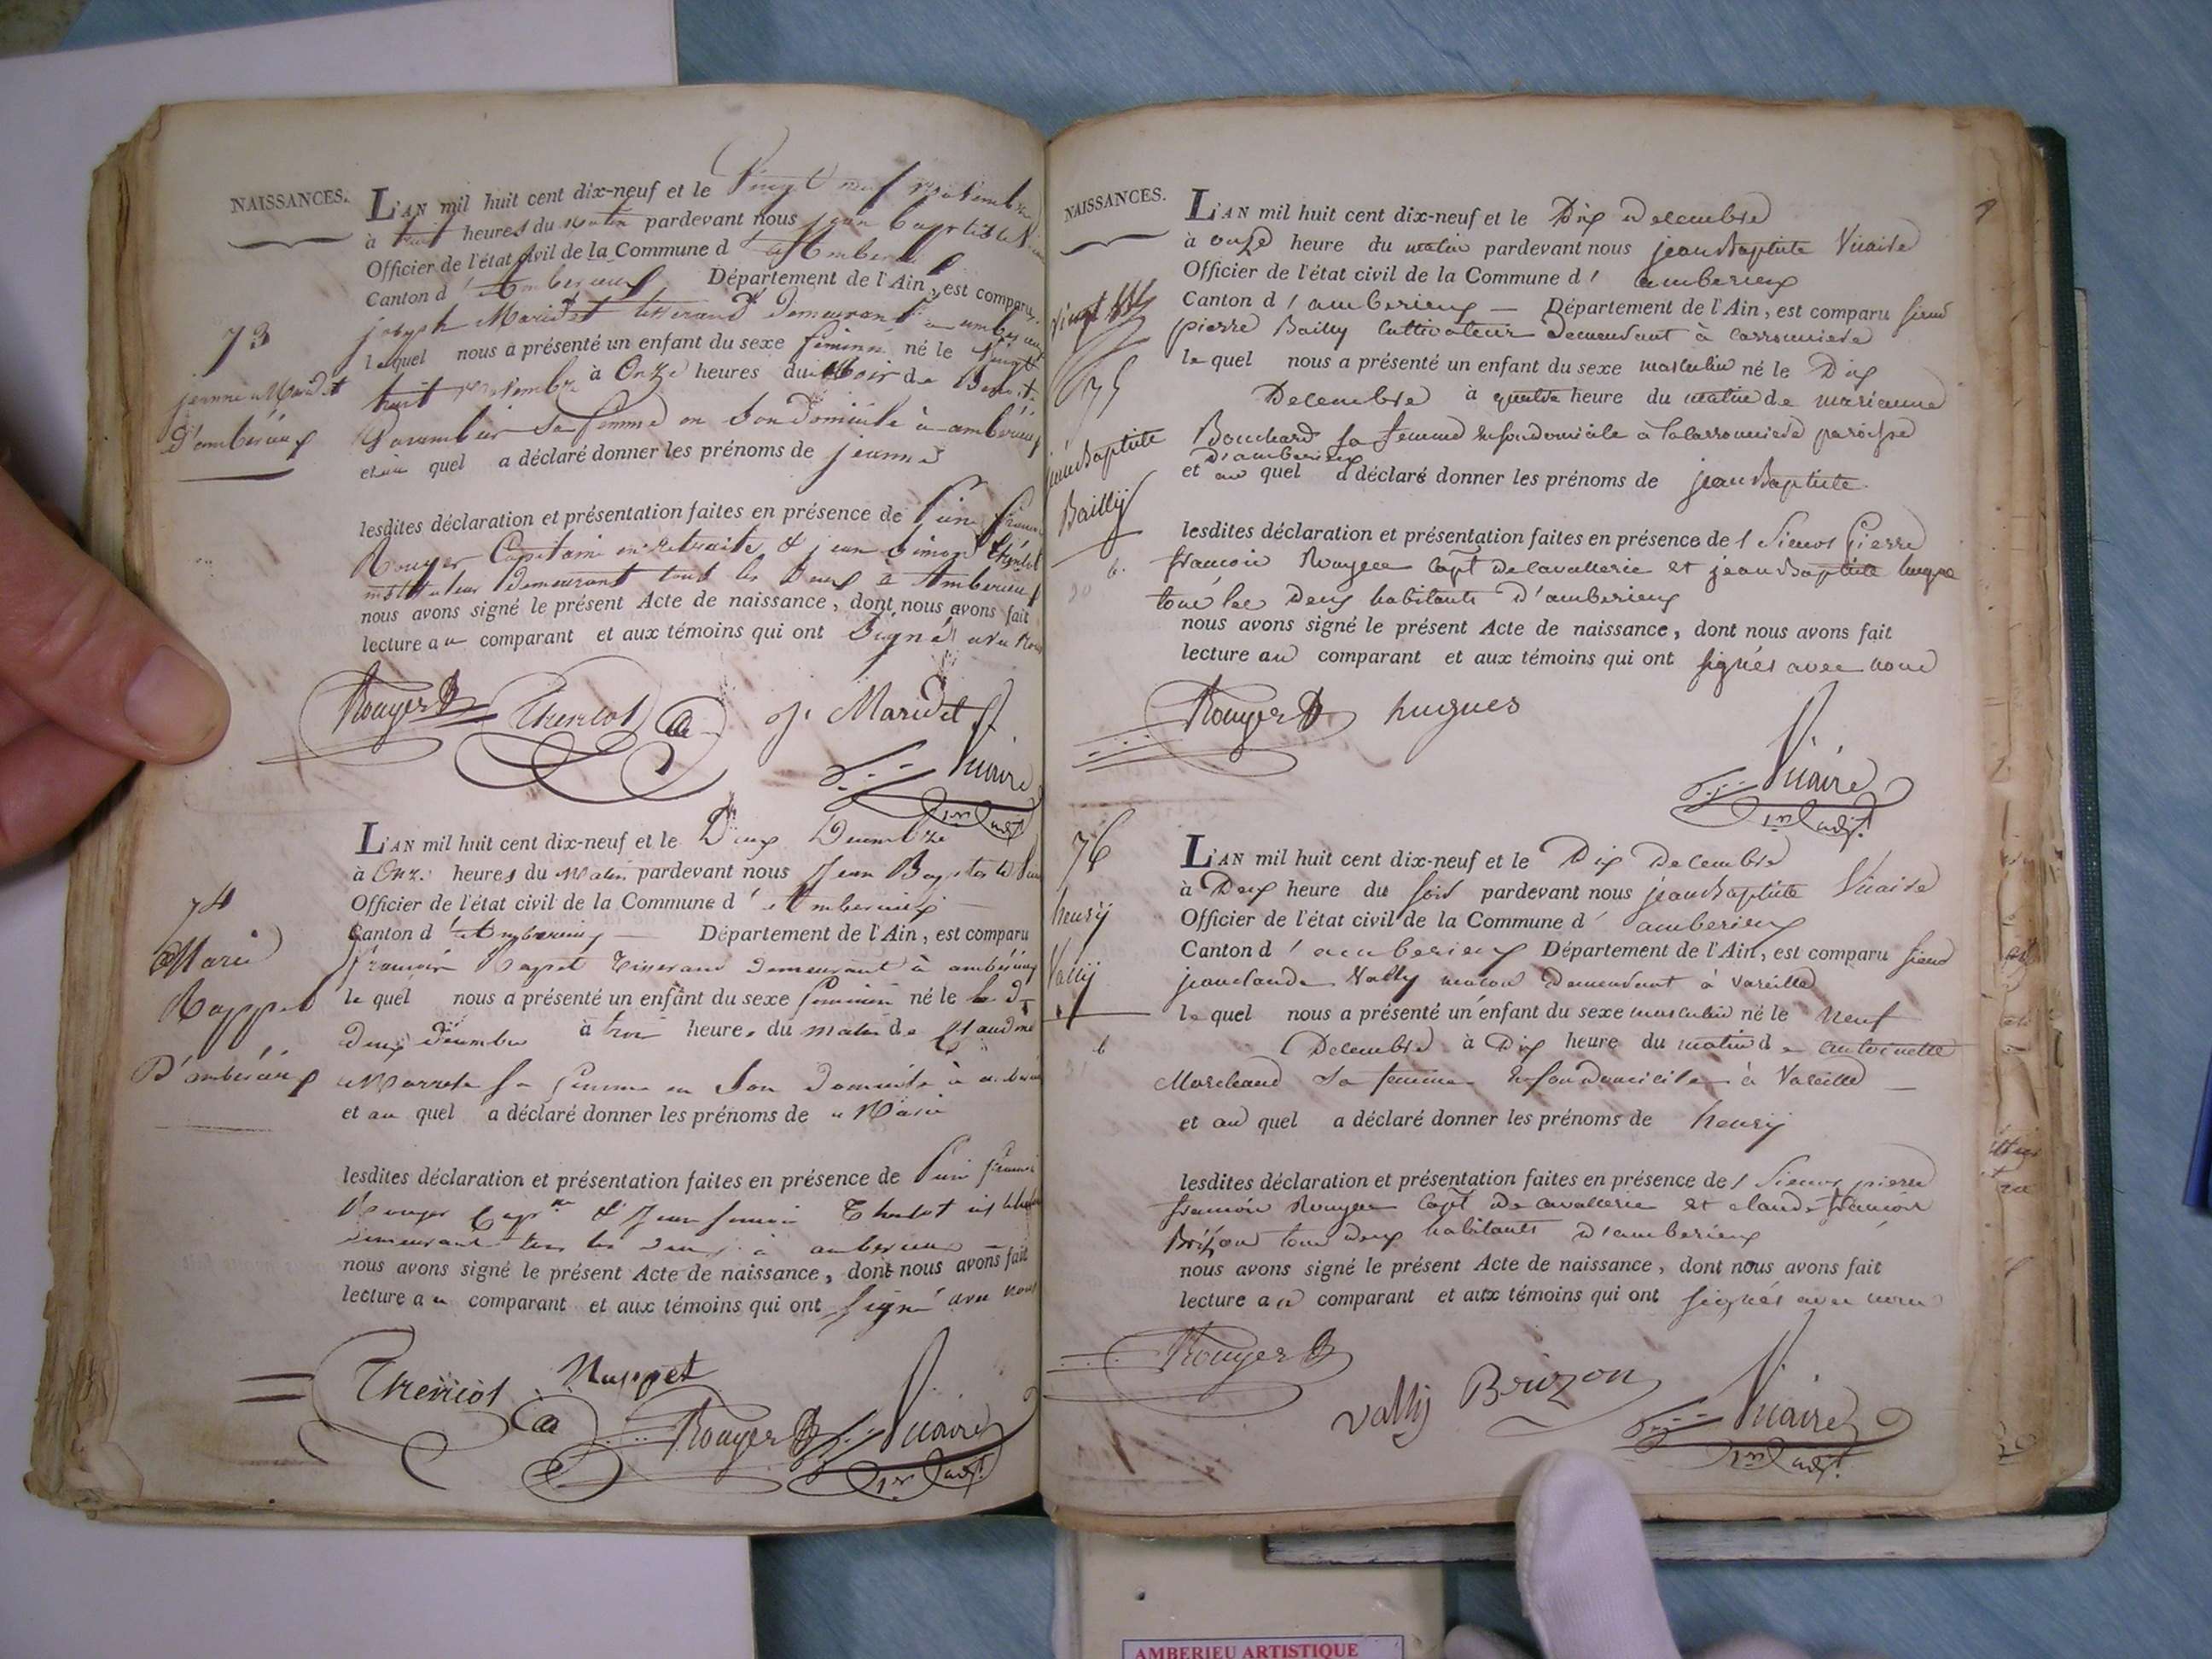 NAISSANCES.
L'AN mil huit cent dix-neuf et le Vingt neuf novembre
à huit heures du matin pardevant nous jean baptiste
Officier de l'état civil de la Commune d'Amberieux
Canton d'Amberieux Département de l'Ain, est comparu
joseph Maridet tisserand demeurant a amberieux
lequel nous a présenté un enfant du sexe feminin né le vingt
huit novembre à Onze heures du soir de
sa femme en son domicile à amberieux
et au quel a déclaré donner les prénoms de jeanne
73
jeanne Maridet
D'amberieux
lesdites déclaration et présentation faites en présence de
Rouyer Capitaine en retraite & jean simon Thenlot
instituteur demeurant tout les deux a Amberieux
nous avons signé le présent Acte de naissance, dont nous avons fait
lecture au comparant et aux témoins qui ont signé avec nous
Rouyer Thenlot j. Maridet
Vicaire
1er adjt
L'AN mil huit cent dix-neuf et le Deux Decembre
à Onze heures du Matin pardevant nous Jean Baptiste
Officier de l'état civil de la Commune d'Amberieux
Canton d'Amberieux Département de l'Ain, est comparu
françois Rappet Tisserand demeurant à amberieux
le quel nous a présenté un enfant du sexe feminin né le
deux decembre à trois heures du matin de Claudine
sa femme en son domicile à
et au quel a déclaré donner les prénoms de Marie
74
Marie
Rappet
D'amberieux
lesdites déclaration et présentation faites en présence de
Rouyer & Jean simon Thenlot
demeurant tous les deux à amberieux
nous avons signé le présent Acte de naissance, dont nous avons fait
lecture au comparant et aux témoins qui ont signé avec nous
Thenlot Rappet
Rouyer Vicaire
1er adjt
NAISSANCES.
L'AN mil huit cent dix-neuf et le Dix Decembre
à onze heure du matin pardevant nous jean Baptiste Vicaire
Officier de l'état civil de la Commune d'amberieux
Canton d'amberieux Département de l'Ain, est comparu sieur
pierre Bailly Cultivateur demeurant à
le quel nous a présenté un enfant du sexe masculin né le Dix
Decembre à quatre heure du matin de marianne
Bouchard sa femme en son domicile a
D'amberieux
et au quel a déclaré donner les prénoms de jean Baptiste
75
jean Baptiste
Bailly
lesdites déclaration et présentation faites en présence des Sieurs Pierre
francois Rouyer Capt de cavallerie et jean Baptiste hugue
tous les deux habitants D'amberieux
nous avons signé le présent Acte de naissance, dont nous avons fait
lecture au comparant et aux témoins qui ont signés avec nous
Rouyer hugues
Vicaire
1er adjt
L'AN mil huit cent dix-neuf et le Dix Decembre
à Deux heure du soir pardevant nous jean Baptiste Vicaire
Officier de l'état civil de la Commune d'amberieux
Canton d'amberieux Département de l'Ain, est comparu sieur
jean claude Vally macon demeurant à Vareille
le quel nous a présenté un enfant du sexe masculin né le Neuf
Decembre à Dix heure du matin de antoinette
sa femme en son domicile a Vareille
et au quel a déclaré donner les prénoms de henry
76
henry
Vally
lesdites déclaration et présentation faites en présence des Sieurs pierre
francois Rouyer Capt de cavallerie et claude francois
Brizon tous deux habitants D'amberieux
nous avons signé le présent Acte de naissance, dont nous avons fait
lecture au comparant et aux témoins qui ont signés avec nous
Rouyer
vally Brizon Vicaire
1er adjt
AMBERIEU ARTISTIQUE